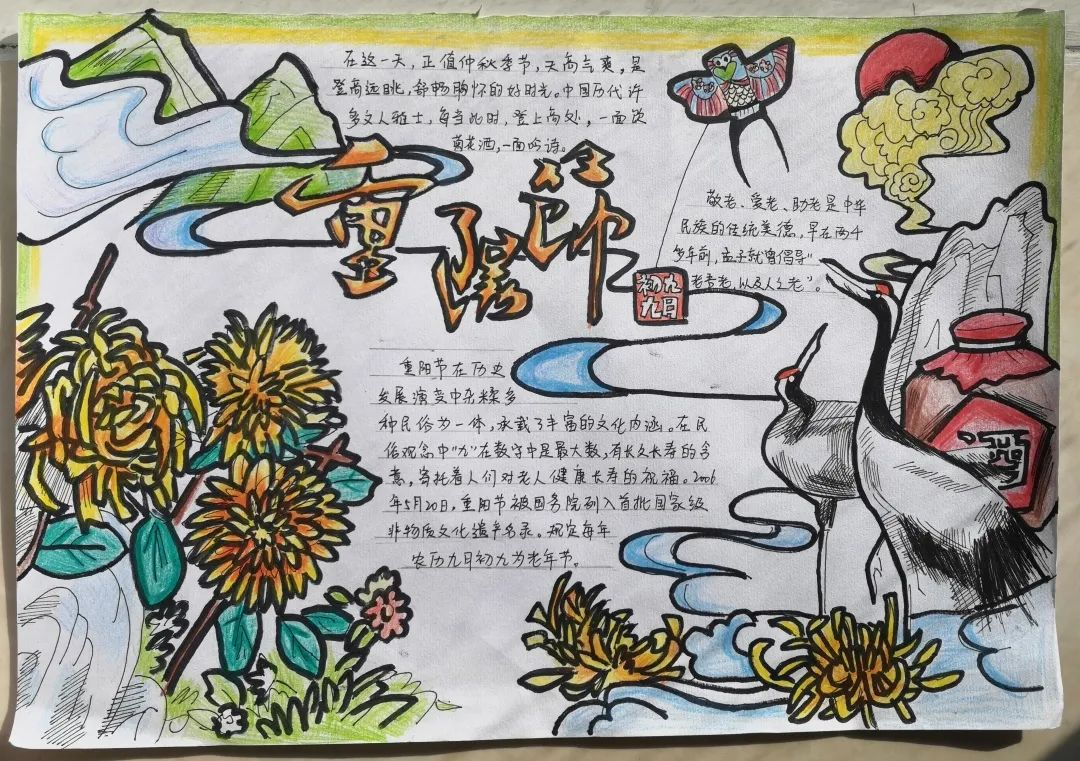 在这一天,正值仲秋季节,天高气爽,是
登高远眺,舒畅胸怀的好时光。中国历代许
多文人雅士,每当此时,登上高处,一面饮
菊花酒,一面吟诗。
重陽節
初九
九月
敬老、爱老、助老是中华
民族的传统美德,早在两千
多年前,孟子就曾倡导“
老吾老,以及人之老”。
重阳节在历史
发展演变中杂糅多
种民俗为一体,承载了丰富的文化内涵。在民
俗观念中“九”在数字中是最大数,有长久长寿的含
意,寄托着人们对老人健康长寿的祝福。2006
年5月20日,重阳节被国务院列入首批国家级
非物质文化遗产名录。规定每年
农历九月初九为老年节。